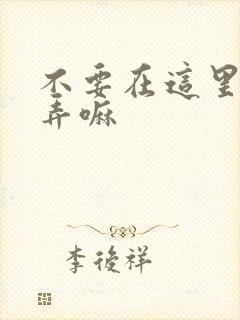 不要在這里
弄嘛
李後祥